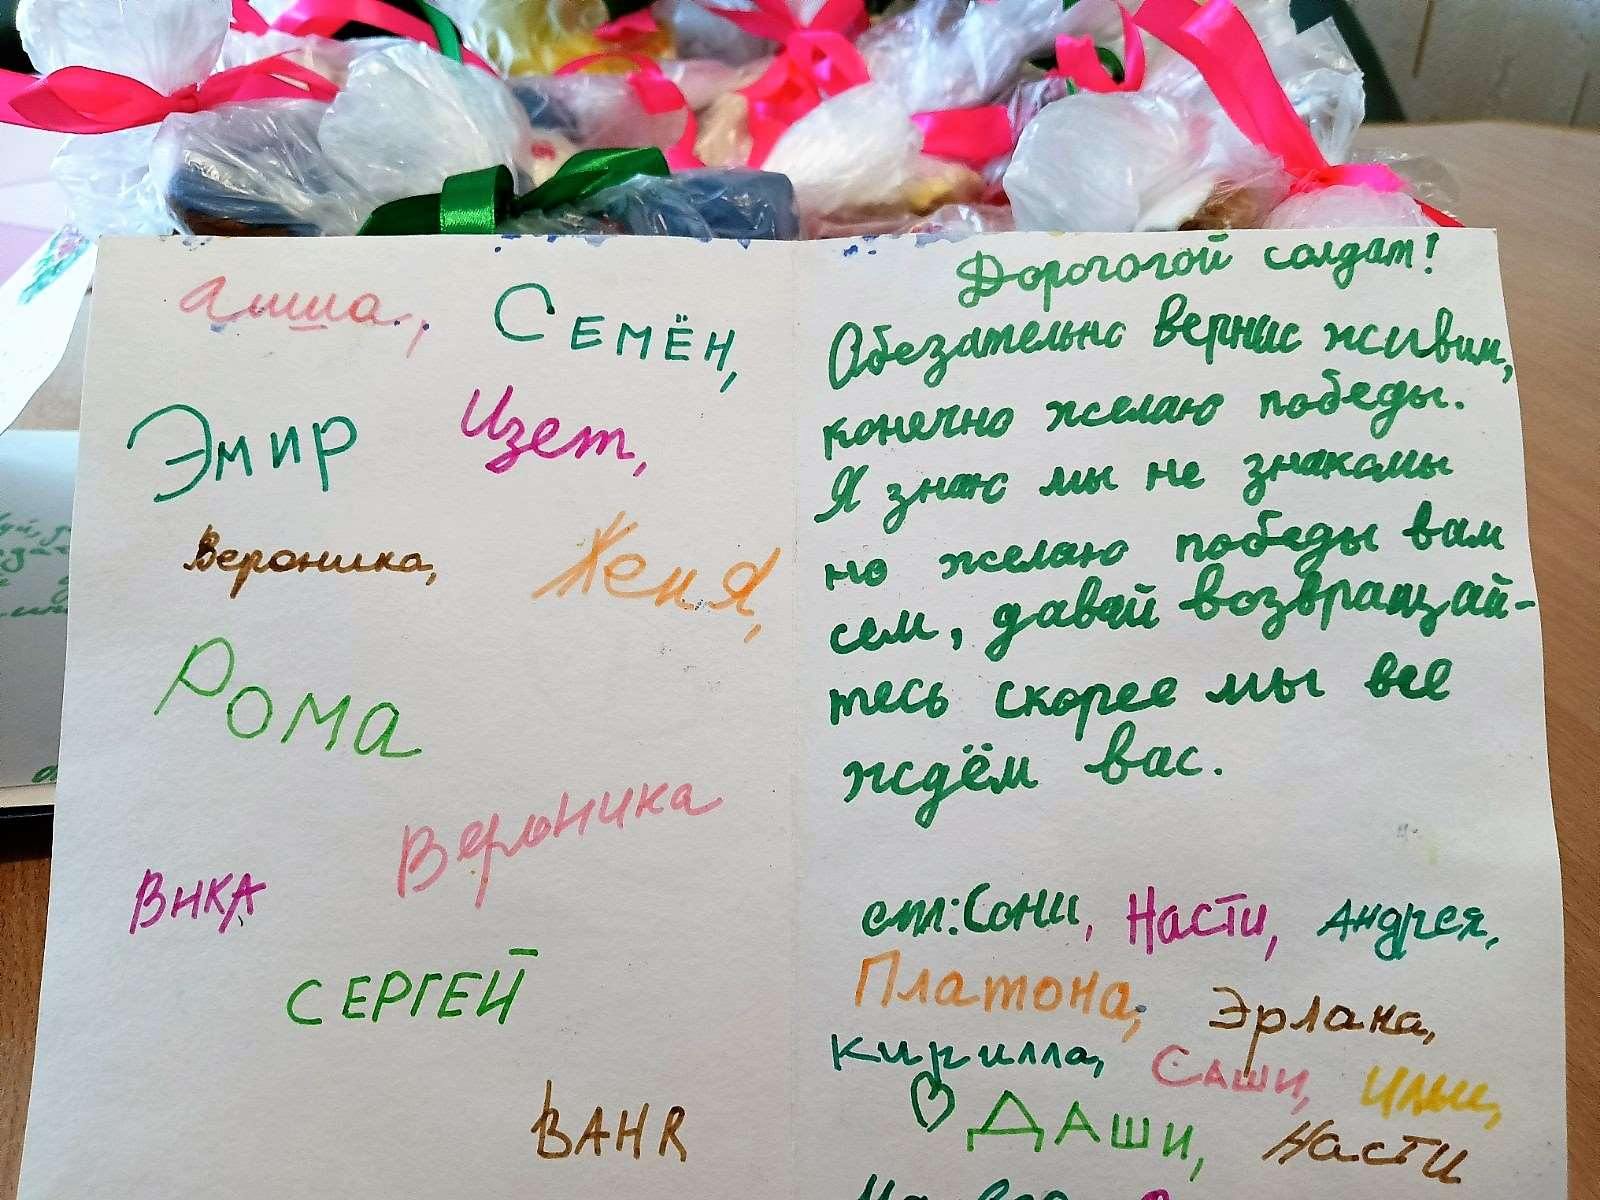 аиша,
Семён,
Эмир
Изет,
Вероника,
Женя,
Рома
Вероника
Вика
СЕРГЕЙ
ВАНЯ
Дорогогой солдат!
Обезательно вернис живим,
конечно желаю победы.
Я знаю мы не знакомы
но желаю победы вам
сем, давай возвращай-
тесь скорее мы все
ждём вас.
от: Сони, Насти, Андрея,
Платона, Эрлана,
Кирилла, Саши, Ильи,
♡ ДАШИ, Насти